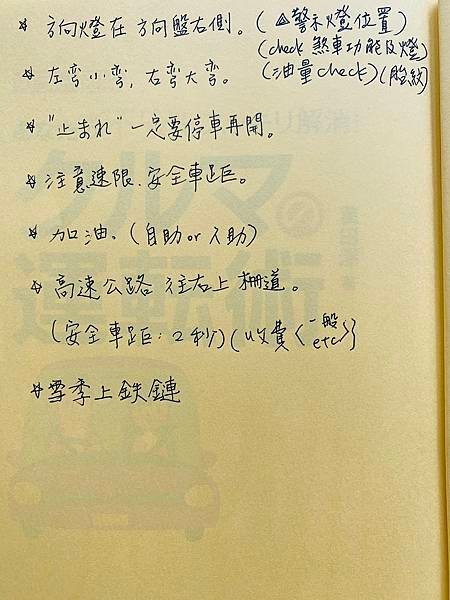 ☆ 方向燈在方向盤右側。(⚠警示燈位置)
(check 煞車功能及燈)
☆ 左彎小彎, 右彎大彎。 (油量check)(胎紋)
☆ "止まれ" 一定要停車再開。
☆ 注意速限、安全車距。
☆ 加油。(自助 or 人助)
☆ 高速公路 往右上柵道。
(安全車距:2秒)(收費〈一般 etc〉)
☆ 雪季上鉄鏈
クルマの
運転術